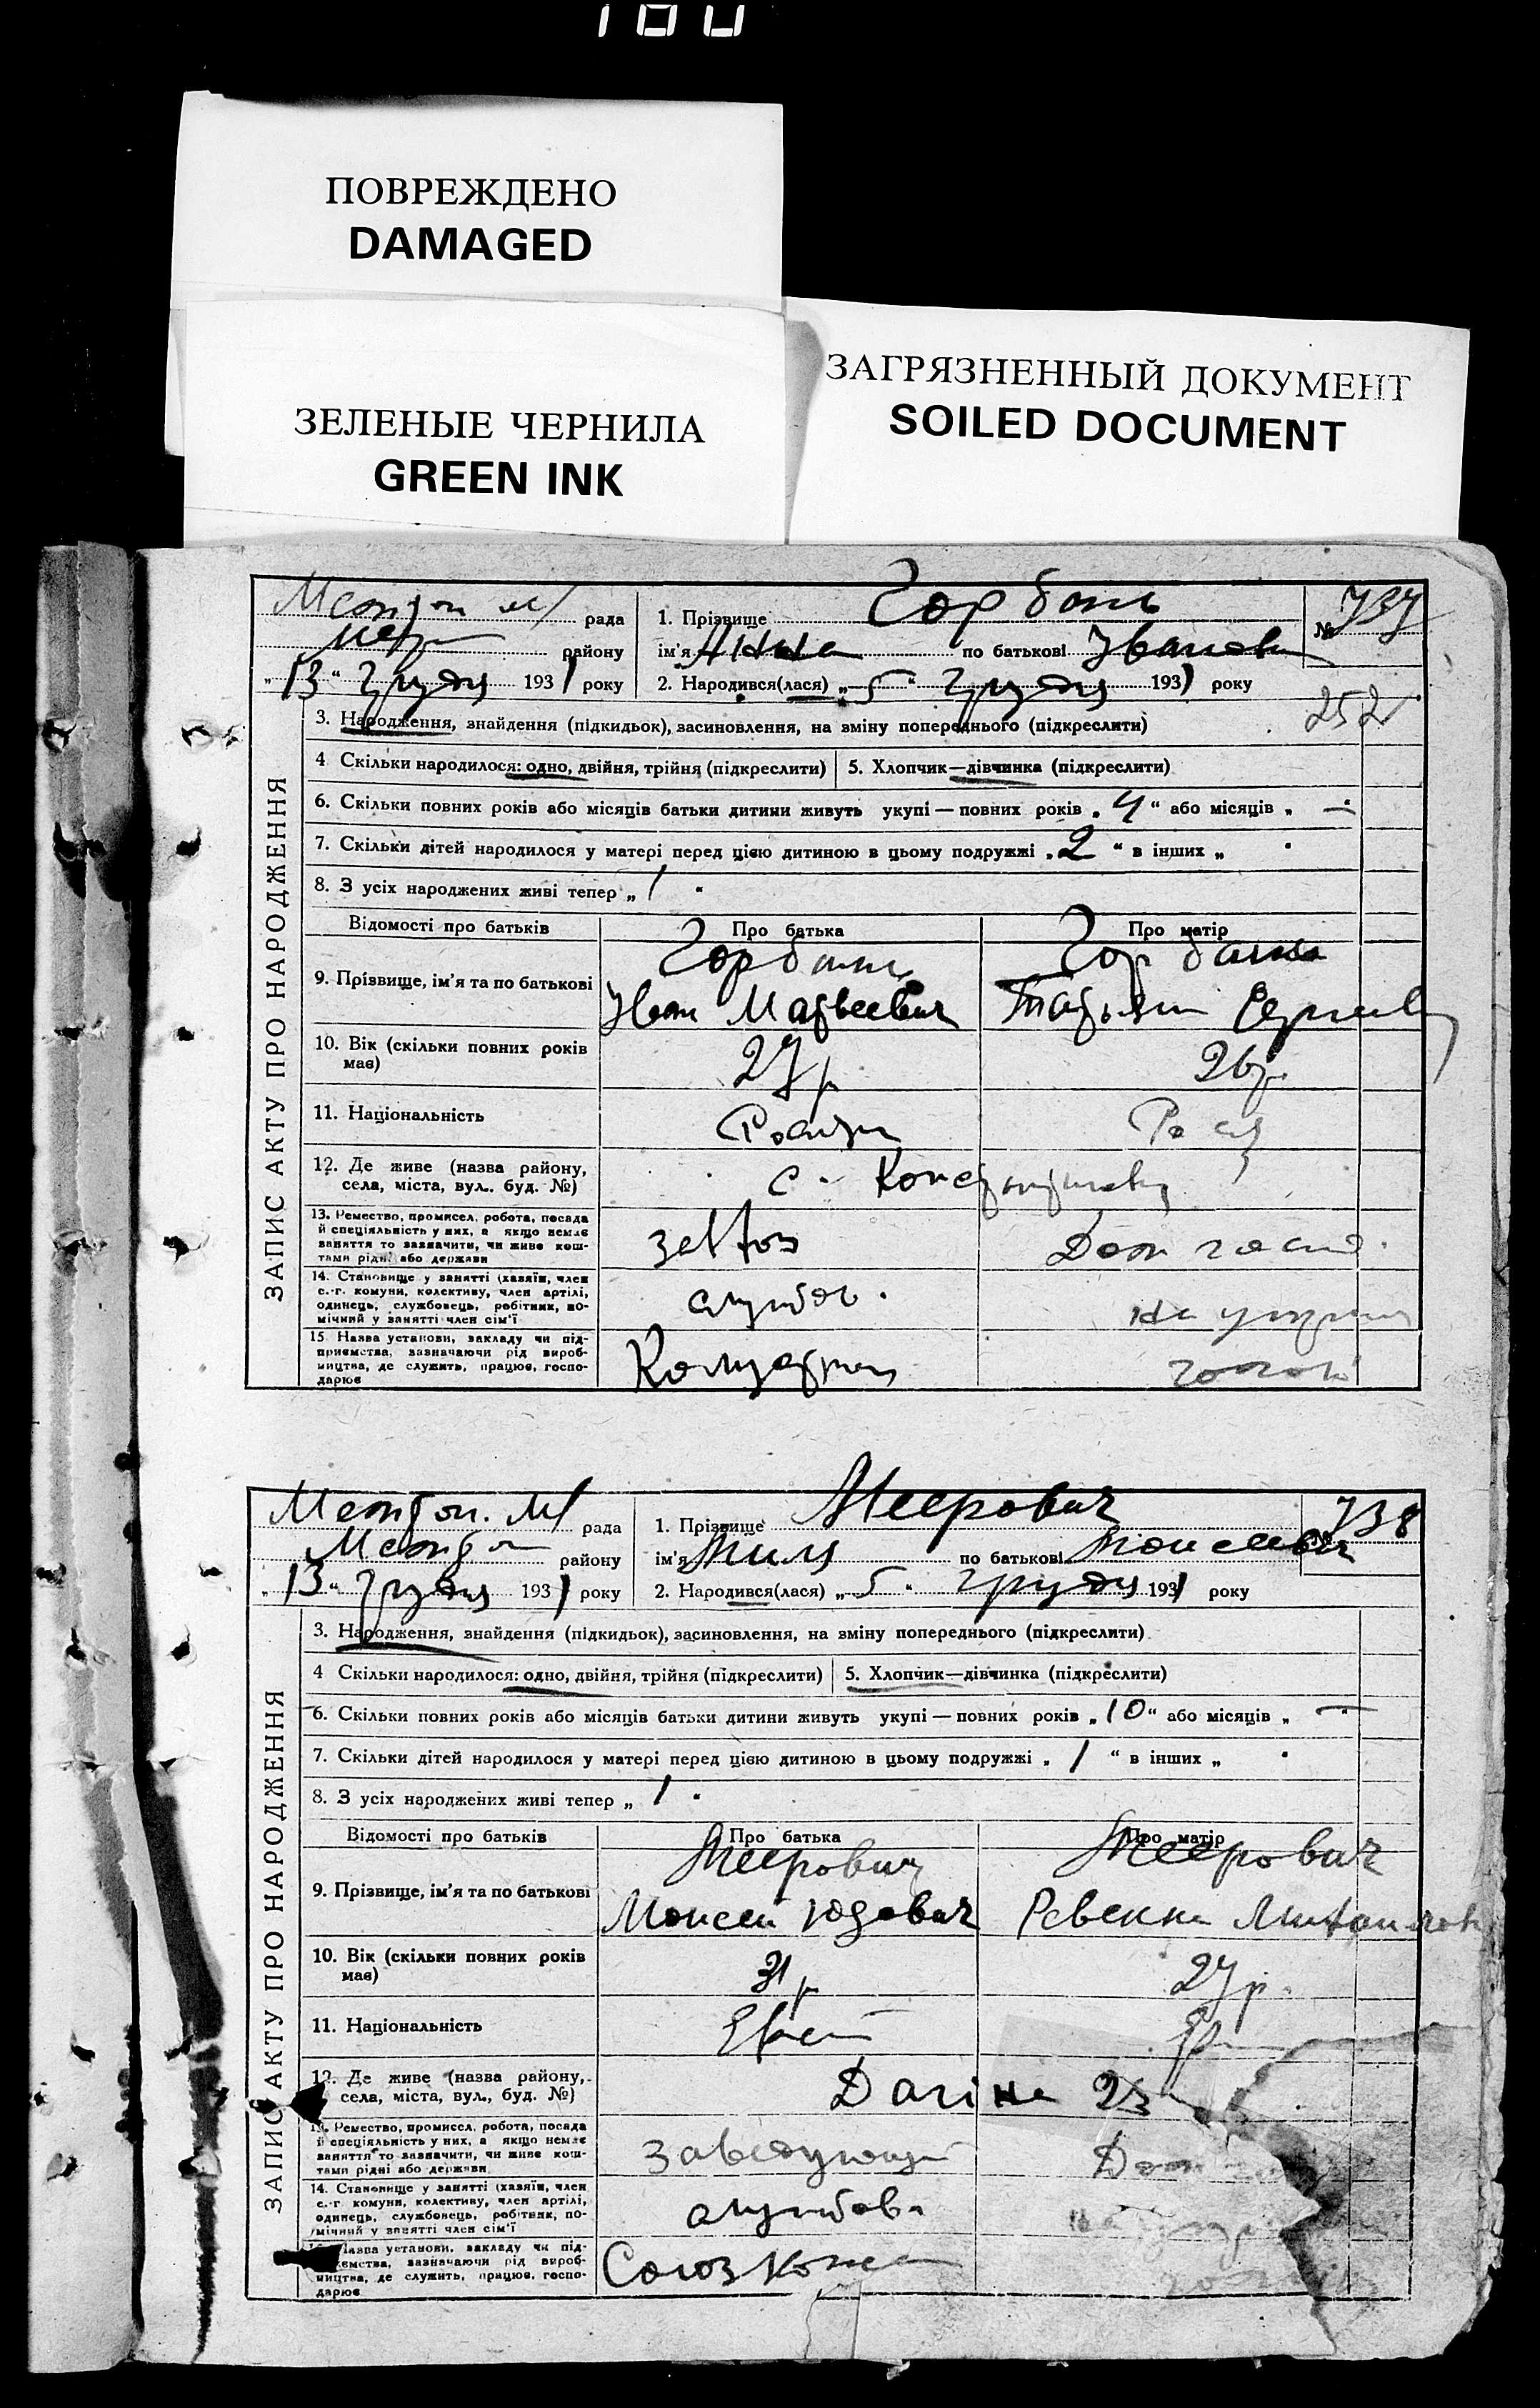 180
ПОВРЕЖДЕНО
DAMAGED
ЗЕЛЕНЫЕ ЧЕРНИЛА
GREEN INK
ЗАГРЯЗНЕННЫЙ ДОКУМЕНТ
SOILED DOCUMENT
ЗАПИС АКТУ ПРО НАРОДЖЕННЯ
рада
району
„ 13 “ Грудня 1931 року
1. Прізвище Горбань
№ 737
ім'я Анна по батькові Іванов
2. Народився(лася) „ 5 “ Грудня 1931 року
252
3. Народження, знайдення (підкидьок), засиновлення, на зміну попереднього (підкреслити)
4 Скільки народилося: одно, двійня, трійня (підкреслити) 5. Хлопчик—дівчинка (підкреслити)
6. Скільки повних років або місяців батьки дитини живуть укупі — повних років „ 4 “ або місяців „ — “
7. Скільки дітей народилося у матері перед цією дитиною в цьому подружжі „ 2 “ в інших „ “
8. З усіх народжених живі тепер „ 1 “
Відомості про батьків Про батька Про матір
9. Прізвище, ім'я та по батькові Горбань Горбань
Иван Матвеевич Татьяна Сергеев
10. Вік (скільки повних років має) 27 р 26 р.
11. Національність
12. Де живе (назва району, села, міста, вул., буд. №) с.
13. Ремество, промисел, робота, посада й спеціяльність у них, а якщо немає заняття то зазначити, чи живе коштами рідні або держави Дом госп.
14. Становище у занятті (хазяїн, член с.-г. комуни, колективу, член артілі, одинець, службовець, робітник, помічний у занятті член сім'ї служб.
15 Назва установи, закладу чи підприємства, зазначаючи рід виробництва, де служить, працює, господарює
ЗАПИС АКТУ ПРО НАРОДЖЕННЯ
рада
району
„ 13 “ Грудня 1931 року
1. Прізвище Меерович
№ 738
ім'я по батькові Моисеевич
2. Народився(лася) „ 5 “ грудня 1931 року
3. Народження, знайдення (підкидьок), засиновлення, на зміну попереднього (підкреслити)
4 Скільки народилося: одно, двійня, трійня (підкреслити) 5. Хлопчик—дівчинка (підкреслити)
6. Скільки повних років або місяців батьки дитини живуть укупі — повних років „ 10 “ або місяців „ — “
7. Скільки дітей народилося у матері перед цією дитиною в цьому подружжі „ 1 “ в інших „ “
8. З усіх народжених живі тепер „ 1 “
Відомості про батьків Про батька Про матір
9. Прізвище, ім'я та по батькові Меерович Меерович
Моисей Юдович Ревекка
10. Вік (скільки повних років має) 31 р 27 р.
11. Національність Еврей
12. Де живе (назва району, села, міста, вул., буд. №) 23
13. Ремество, промисел, робота, посада й спеціяльність у них, а якщо немає заняття то зазначити, чи живе коштами рідні або держави Заведующий Дом
14. Становище у занятті (хазяїн, член с.-г комуни, колективу, член артілі, одинець, службовець, робітник, помічний у занятті член сім'ї службов.
Назва установи, закладу чи підприємства, зазначаючи рід виробництва, де служить, працює, господарює Союзкожа